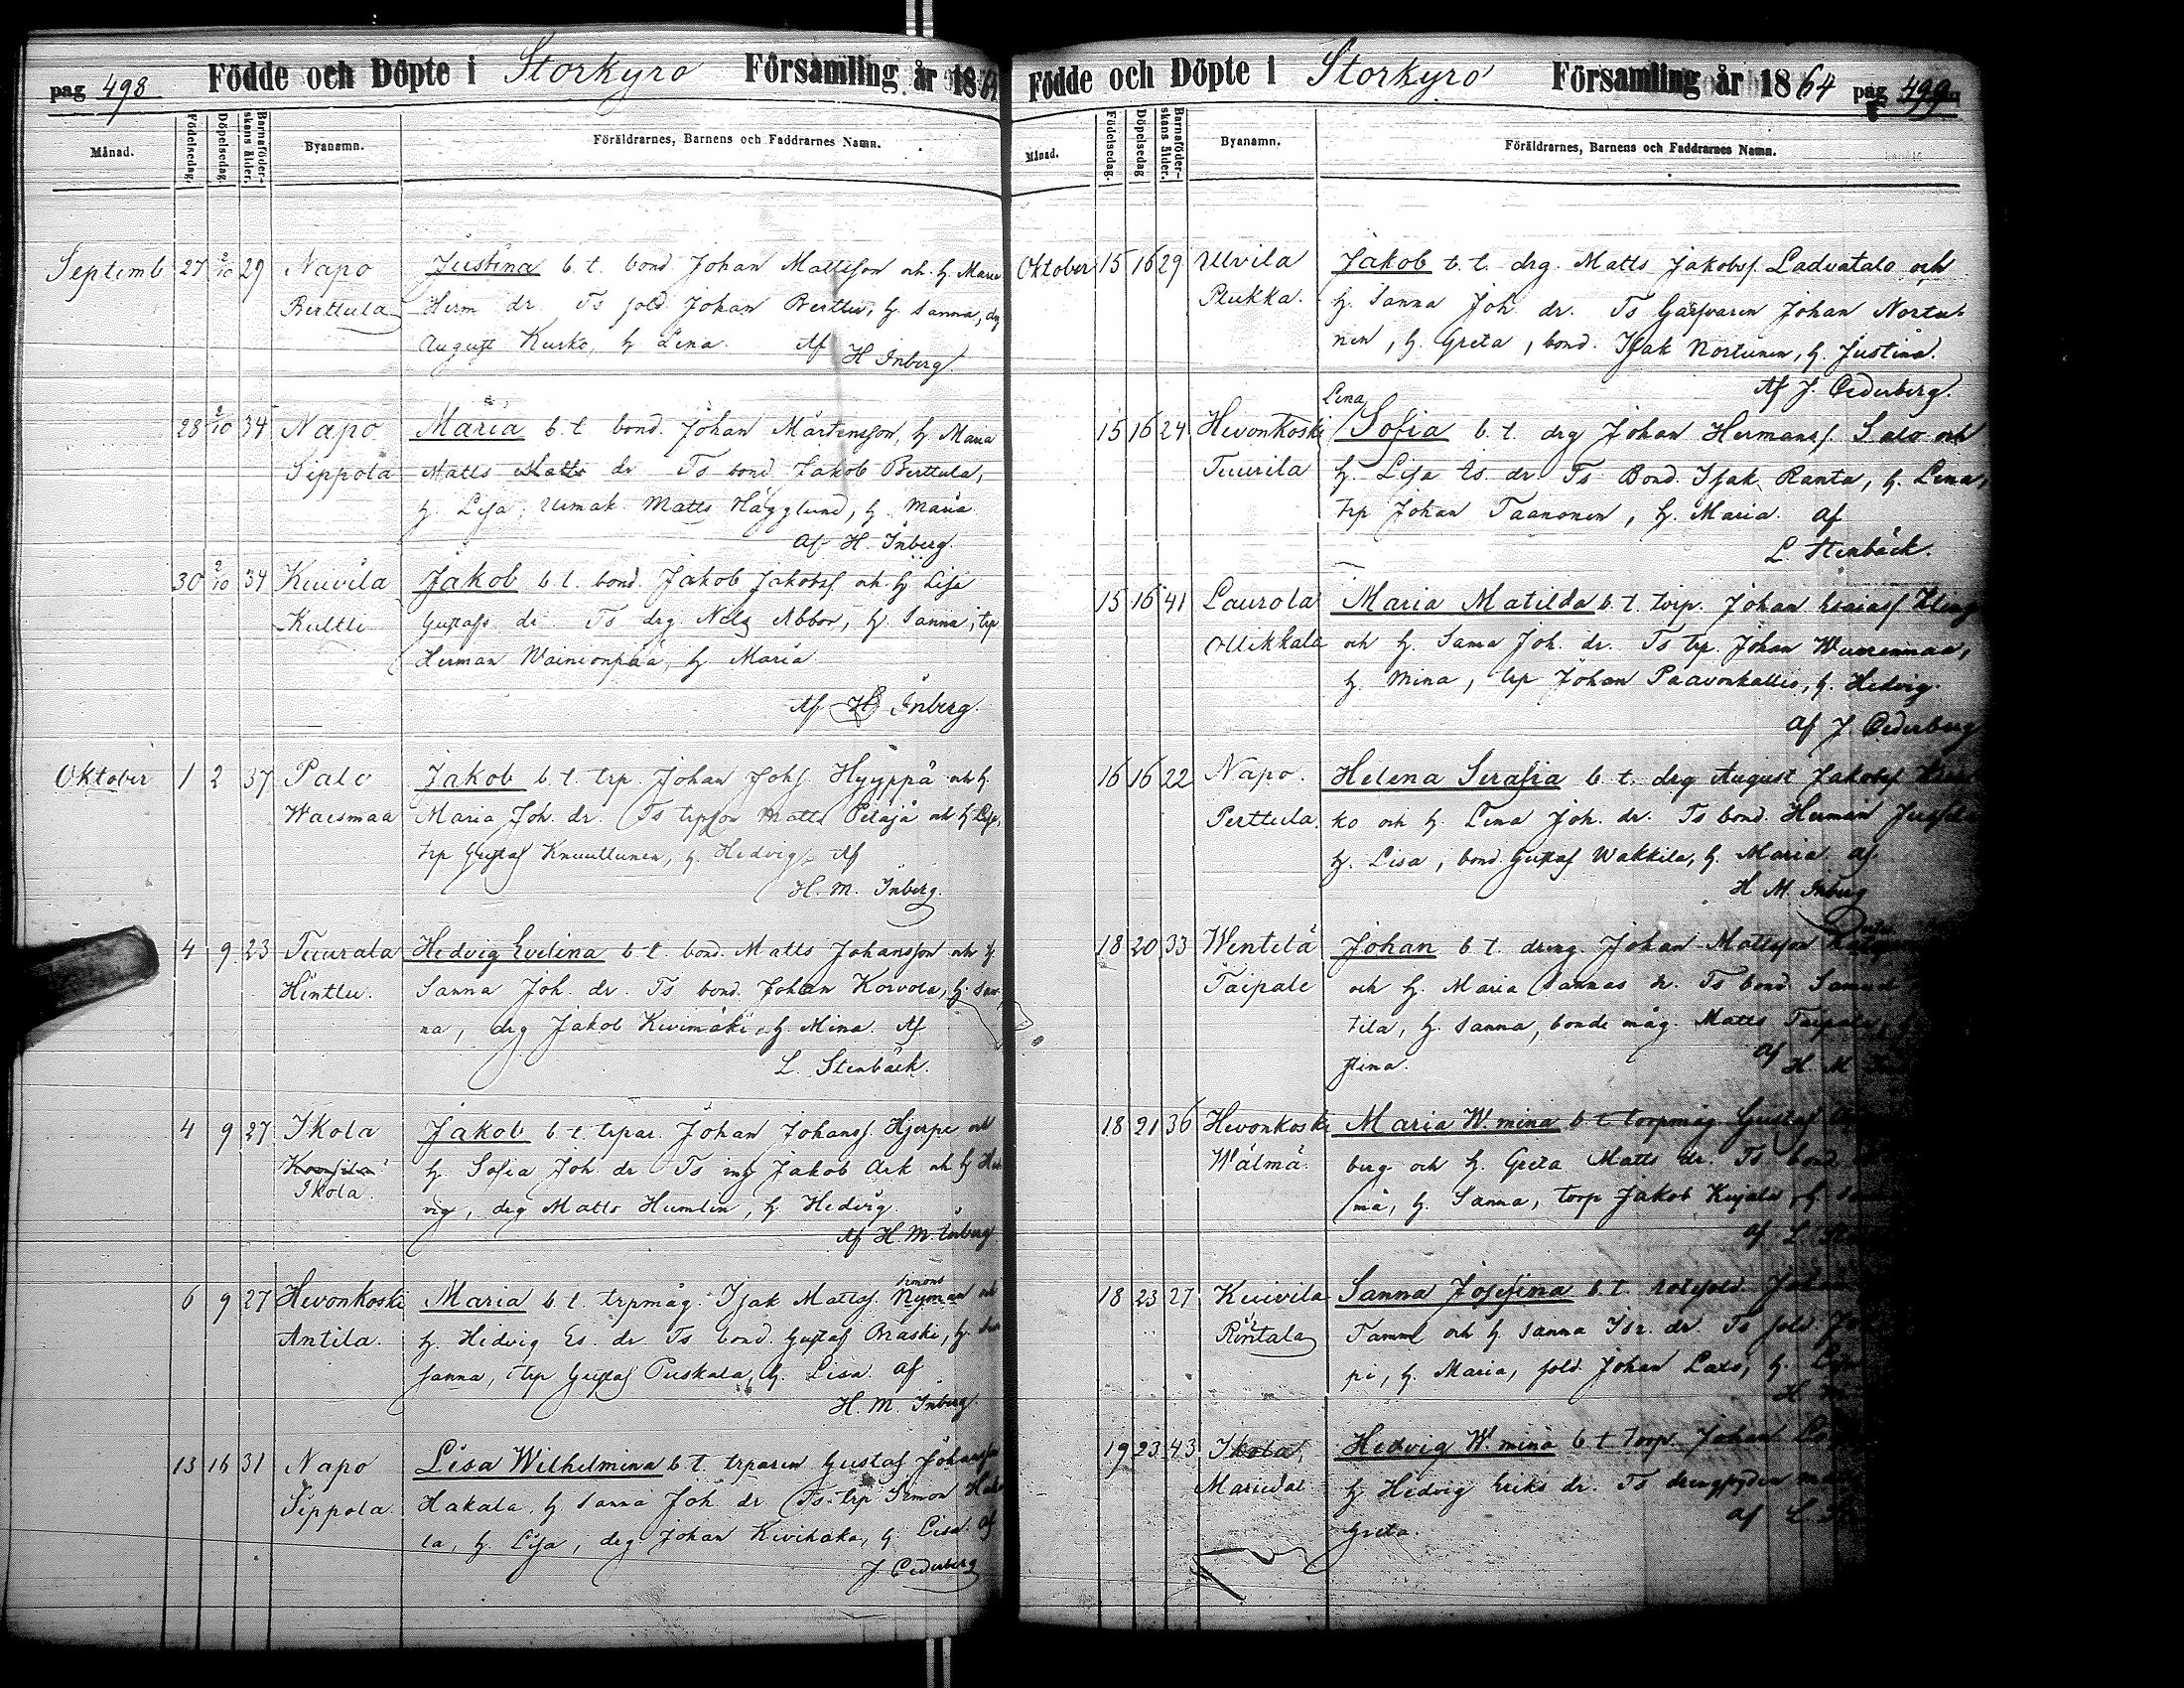 pag 498 Födde och Döpte i Storkyro Församling år 1864
Månad. Födelsedag. Döpelsedag. Barnaföderskans ålder. Byanamn. Föräldrarnes, Barnens och Faddrarnes Namn.
Septemb 27 2/10 29 Napo Justina b. t. bond Johan Mattsson och h. Maria
Berttula Herm dr. Ts sold Johan Berttu, h. Sanna, drg
August Kurko, h Lena. Af
H Inberg.
28 2/10 34 Napo Maria b. t. bond. Johan Mårtensson, h Maria
Seppola Matts dr Ts bond Jakob Berttula,
h. Lisa, Matts Hägglund, h. Maria
Af H. Inberg.
30 2/10 34 Kuivila Jakob b t. bond. Jakob Jakobss och h Lisa
Kultti Gustafs dr Ts drg Nels Abbor, h. Sanna, trp
Herman Wainionpää, h Maria.
Af H Inberg.
Oktober 1 2 37 Palo Jakob b t. trp. Johan Johs Hyyppä och h.
Waismaa Maria Joh. dr. Ts trpson Matts Peräjä och h Lisa,
trp Gustaf Knuuttunen, h. Hedvig. Af
H. M. Inberg.
4 9 23 Tuurala Hedvig Evelina b t. bond. Matts Johansson och h.
Hinttu. Sanna Joh. dr. Ts bond. Johan Korvola, h. San-
na, drg Jakob Kivimäki, h. Mina. Af
L. Stenbäck.
4 9 27 Ikola Jakob b t. trpar. Johan Johanss. Hjerpe och
h. Sofia Joh. dr Ts Jakob Ark och h Hed
Ikola. vig, drg Matts Humlin, h. Hedvig.
Af H. M. Inberg
Simons
6 9 27 Hevonkoski Maria b t. trpmåg. Isak Mattss. Nyman och
Antila. h. Hedvig Es. dr. Ts bond. Gustaf Braski, h.
Sanna, trp Gustaf Puskala, h. Lisa. af
H. M. Inberg.
13 16 31 Napo Lisa Wilhelmina b t. trparen Gustaf Johansson
Sippola. Hakala, h Sanna Joh dr Ts trp Simon Haka
la, h. Lisa, drg Johan Kivihaka, h. Lisa. af
J Cederberg
Födde och Döpte i Storkyro Församling år 1864 pag 499
Månad. Födelsedag. Döpelsedag Barnaföderskans ålder. Byanamn. Föräldrarnes, Barnens och Faddrarnes Namn.
Oktober 15 16 29 Ulvila Jakob b. t. drg. Matts Jakobss. Ladvatalo och
Plukka. h. Sanna Joh dr. Ts Garfvaren Johan Nortu-
nen, h. Greta, bond. Isak Nortunen, h. Justina.
Af J. Cederberg.
Lena
15 16 24 Hevonkoski Sofia b. t. drg Johan Hermanss. Salo och
Tuurila h. Lisa Es. dr Ts Bond. Isak Ranta, h. Lena,
trp Johan Taanonen, h. Maria. af
L. Stenbäck.
15 16 41 Laurola Maria Matilda b. t. torp. Johan Esaiass
Ollikkala och h. Sanna Joh. dr. Ts trp. Johan Wuorenmaa,
h. Mina, trp Johan Paavonkallio, h. Hedvig.
af J. Cederberg
16 16 22 Napo. Helena Serafia b. t. drg August Jakobss
Perttula. ko och h. Lena Joh. dr. Ts bond. Herman
h. Lisa, bond. Gustaf Wakkila, h. Maria. af.
H M. Inberg
18 20 33 Wentelä Johan b t. dreng. Johan Mattsson
Taipale och h. Maria Sannas dr. Ts bond Samuel
tila, h. Sanna, bonde måg. Matts Taipale,
stina. af H. M
18 21 36 Hevonkoski Maria W. mina b t torpmåg Gustaf
Wälmä. berg och h. Greta Matts dr. Ts bond
mä, h. Sanna, torp Jakob Kujala, h. San
af L. St
18 23 27 Kuivila Sanna Josefina b. t. rotesold. Johan
Rintala Tamm och h Sanna Isr. dr. Ts sold.
pi, h. Maria, sold. Johan Lars, h. Lisa
H. M.
19 23 43 Ikola, Hedvig W. mina b t torp. Johan
Mariedal h Hedvig Eriks dr. Ts
Greta. af L. St